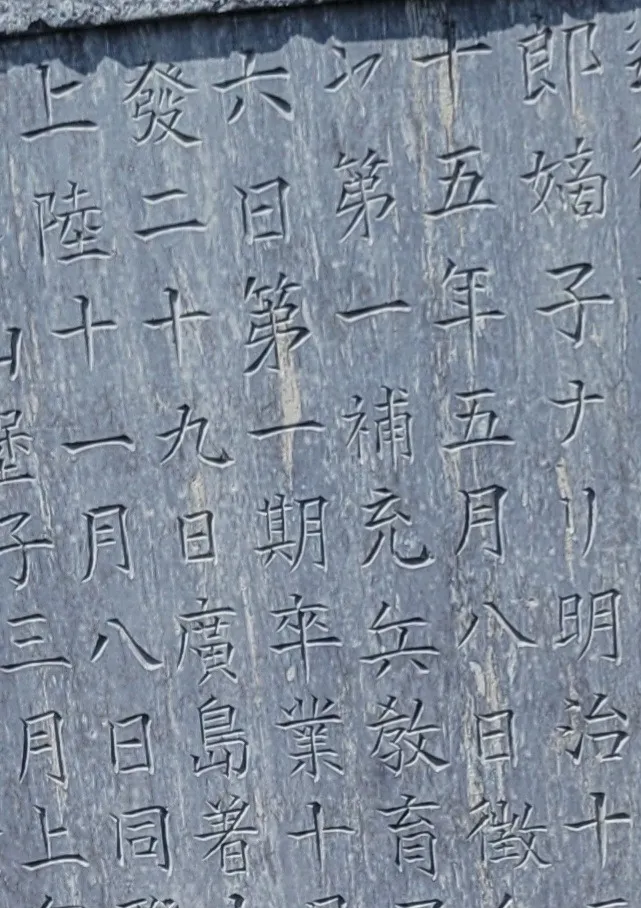 郎嫡子ナリ明治十
十五年五月八日徴
第一補充兵教育
六日第一期卒業十
發二十九日廣島著
上陸十一月八日同
堡子三月上